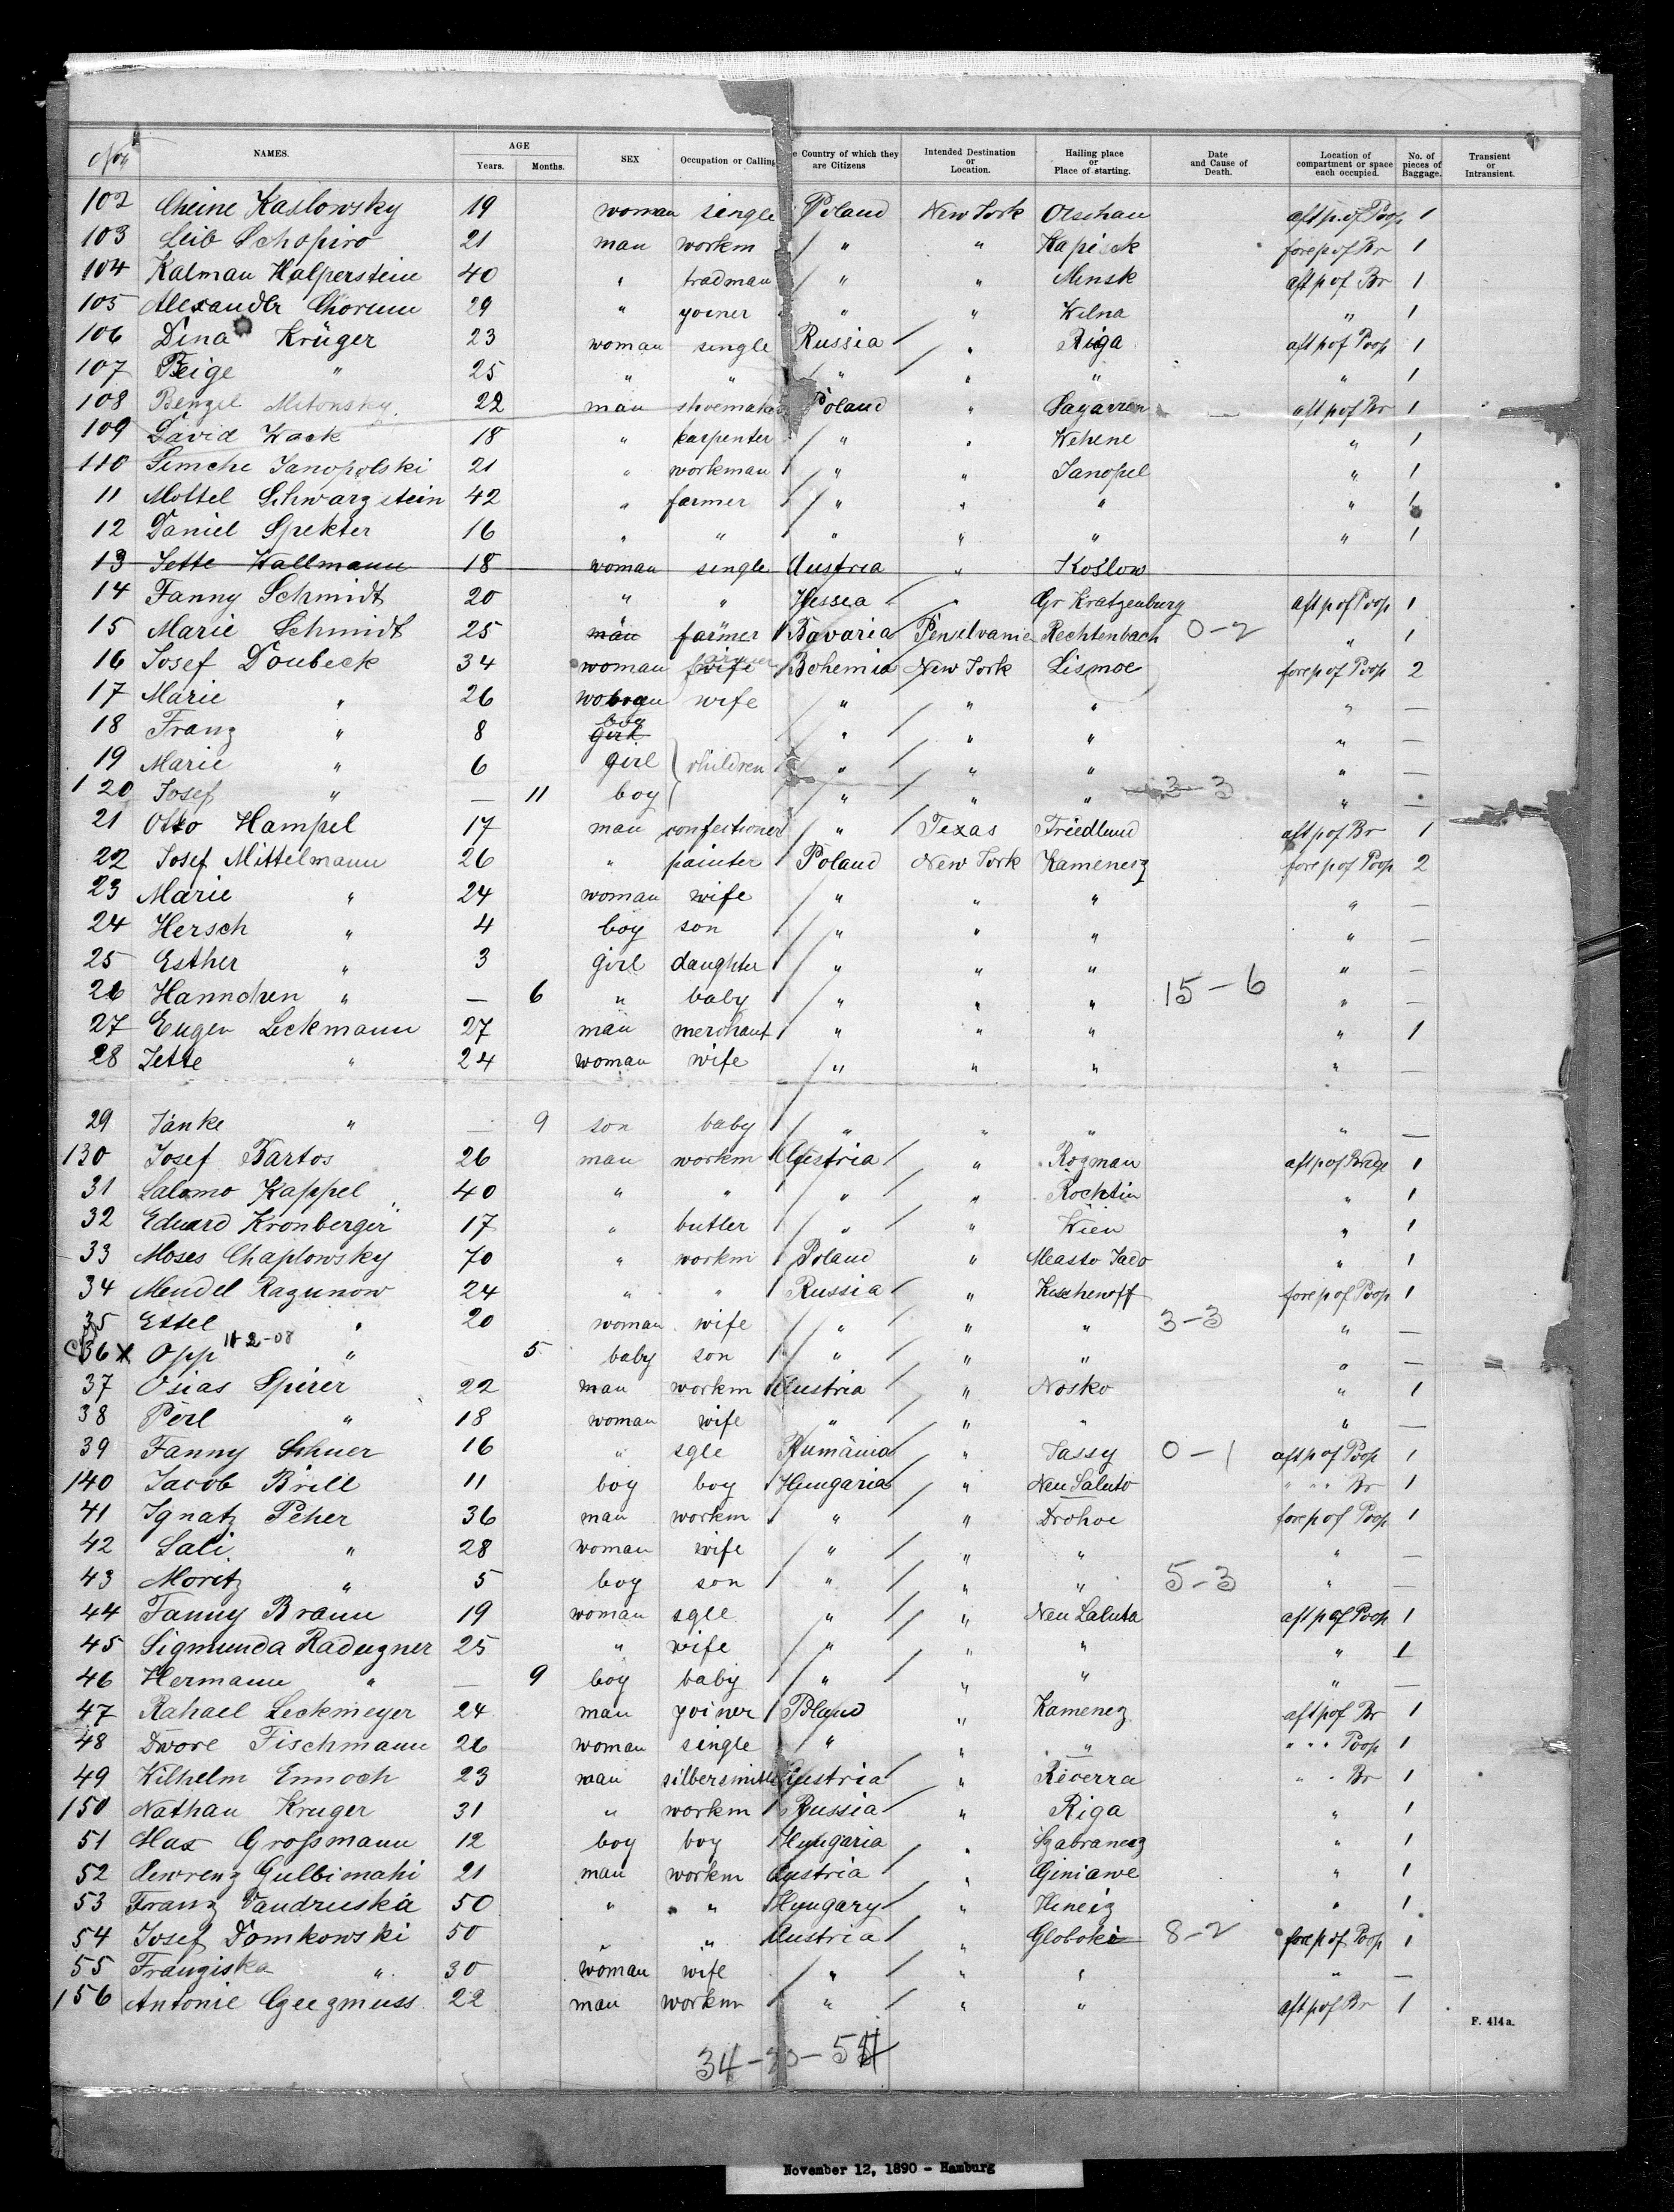 NAMES. AGE Years. Months. SEX Occupation or Calling e Country of which they are Citizens Intended Destination or Location. Hailing place or Place of starting. Date and Cause of Death. Location of compartment or space each occupied. No. of pieces of Baggage. Transient or Intransient.
102 Cheine Kaslowsky 19 woman single Poland New York Olschau aft p. of Poop 1
103 Leib Schopiro 21 man workm " " forep of Br 1
104 Kalman Halperstein 40 " tradman " " Minsk aft p of Br 1
105 Alexander 29 " yoiner " " Wilna " 1
106 Dina Krüger 23 woman single Russia " Riga aft p of Poop 1
107 Feige " 25 " " " " " " 1
108 Benzel Mitonsky 22 man shoemaker Poland " aft p of Br 1
109 David Wack 18 " carpenter " " Wehene " 1
110 Simche Janopolski 21 " workman " " Janopel " 1
11 Mottel Schwarzstein 42 " farmer " " " " 1
12 Daniel Spekter 16 " " " " " " 1
13 Jette Wallmann 18 woman single Austria " Koslow
14 Fanny Schmidt 20 " " Hessea " Gr Kratzenburg aft p of Poop 1
15 Marie Schmidt 25 man farmer Bavaria Pensilvanie Rechtenbach 0-2 " 1
16 Josef Doubeck 34 woman wife Bohemia New York Lismoe forep of Poop 2
17 Marie " 26 woman wife " " " " —
18 Franz " 8 boy girl " " " " —
19 Marie " 6 girl children " " " " —
120 Josef " — 11 boy " " " 3-3 " —
21 Otto Hampel 17 man confectioner " Texas Friedlund aft p of Br 1
22 Josef Mittelmann 26 " painter Poland New York Kamenesz forep of Poop 2
23 Marie " 24 woman wife " " " " —
24 Hersch " 4 boy son " " " " —
25 Esther " 3 girl daughter " " " " —
26 Hannchen " — 6 " baby " " " 15-6 " —
27 Eugen Leckmann 27 man merchant " " " " 1
28 Jette " 24 woman wife " " " " —
29 Janke " — 9 son baby " " " " —
130 Josef Bartos 26 man workm Austria " Rozman aft p of Bridge 1
31 Salomo Kappel 40 " " " " Rochtin " 1
32 Eduard Kronberger 17 " butler " " Wien " 1
33 Moses Chaplowsky 70 " workm Poland " Measto Jado " 1
34 Mendel Razunow 24 " " Russia " Kischenoff forep of Poop 1
35 Ettel " 20 woman wife " " " 3-3 " —
36 x Opp 11-2-08 " 5 baby son " " " " —
37 Osias Spirer 22 man workm Austria " Nosko " 1
38 Perl " 18 woman wife " " " " —
39 Fanny Schuer 16 " sgle Rumänia " Jassy 0-1 aft p of Poop 1
140 Jacob Brill 11 boy boy Hungaria " Neu Saluto " " " Br 1
41 Ignatz Peher 36 man workm " " Drohoe forep of Poop 1
42 Sali " 28 woman wife " " " " —
43 Moritz " 5 boy son " " " 5-3 " —
44 Fanny Braun 19 woman sgle " " Neu Saluta aft p of Poop 1
45 Sigmunda Radezner 25 " wife " " " " 1
46 Hermann " — 9 boy baby " " " " —
47 Rahael Leckmeyer 24 man yoiner Poland " Kamenez aft p of Br 1
48 Dwore Fischmann 26 woman single " " " " " " Poop 1
49 Wilhelm Ennoch 23 man silbersmith Austria " Riverra " " Br 1
150 Nathan Kruger 31 " workm Russia " Riga " 1
51 Max Grossmann 12 boy boy Hungaria " " 1
52 Lewrenz Gulbimahi 21 man workm Austria " Giniawe " 1
53 Franz Vandruska 50 " " Hungary " " 1
54 Josef Domkowski 50 " " Austria " Globoki 8-2 forep of Poop 1
55 Franziska " 30 woman wife " " " " —
156 Antonie 22 man workm " " " aft p of Br 1
F. 414a.
November 12, 1890 - Hamburg